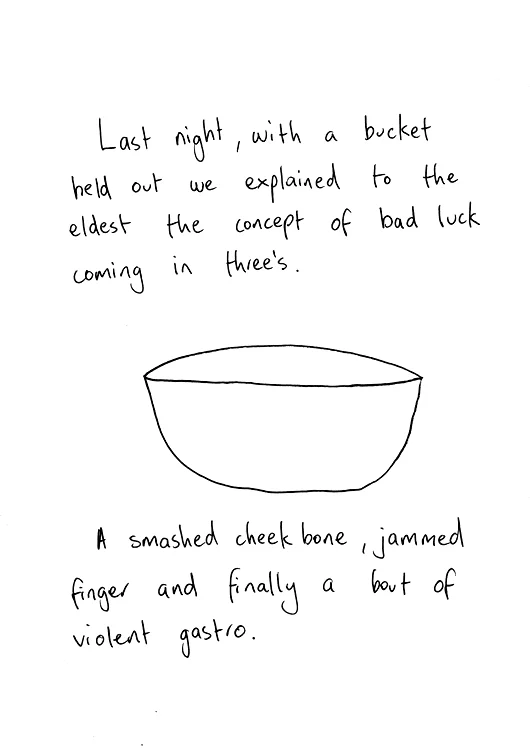 Last night, with a bucket
held out we explained to the
eldest the concept of bad luck
coming in three's.
A smashed cheek bone, jammed
finger and finally a bout of
violent gastro.